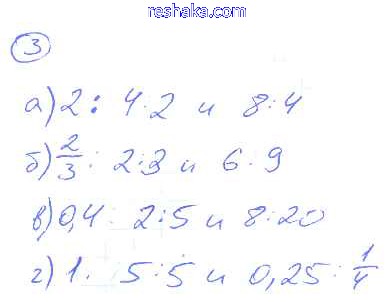 reshaka.com
3
а) 2 : 4:2 и 8:4
б) 2/3 : 2:3 и 6:9
в) 0,4 : 2:5 и 8:20
г) 1. 5:5 и 0,25 : 1/4